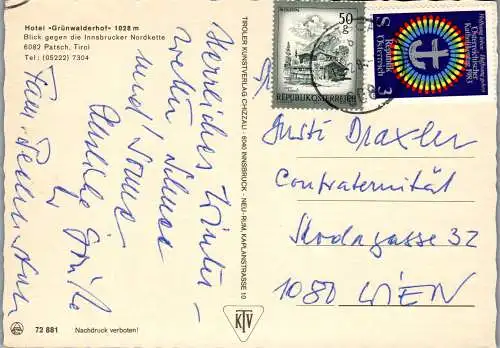 Hotel «Grünwalderhof» 1028 m
Blick gegen die Innsbrucker Nordkette
6082 Patsch, Tirol
Tel: (05222) 7304
Herrliches Winter-
wetter Schnee
und Sonne
Herzliche Grüße
Fam.
72 881 Nachdruck verboten!
TIROLER KUNSTVERLAG CHIZZALI · 6040 INNSBRUCK - NEU-RUM, KAPLANSTRASSE 10
KTV
50 g
REPUBLIK ÖSTERREICH
Hoffnung leben · Hoffnung geben
Österreichischer
Katholikentag 1983
Republik
Österreich
S 3
Gusti Draxler
Confraternität
Skodagasse 32
1080 WIEN